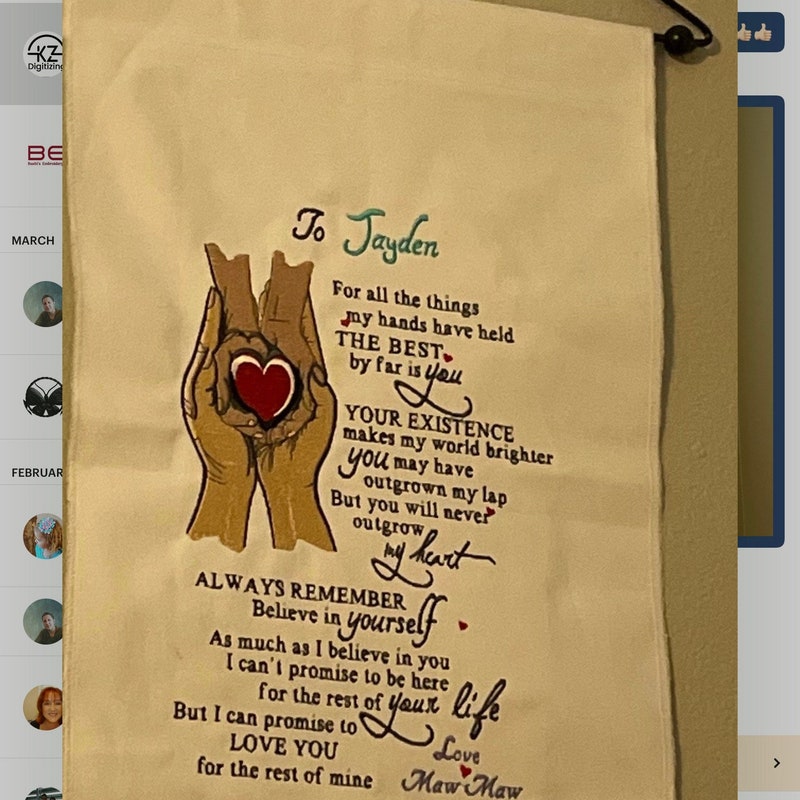 KZ
Digitizing
BE
MARCH
FEBRUAR
To Jayden
For all the things
my hands have held
THE BEST
by far is you
YOUR EXISTENCE
makes my world brighter
you may have
outgrown my lap
But you will never
outgrow
my heart
ALWAYS REMEMBER
Believe in yourself
As much as I believe in you
I can't promise to be here
for the rest of your life
But I can promise to
LOVE YOU
for the rest of mine
Love
Maw Maw